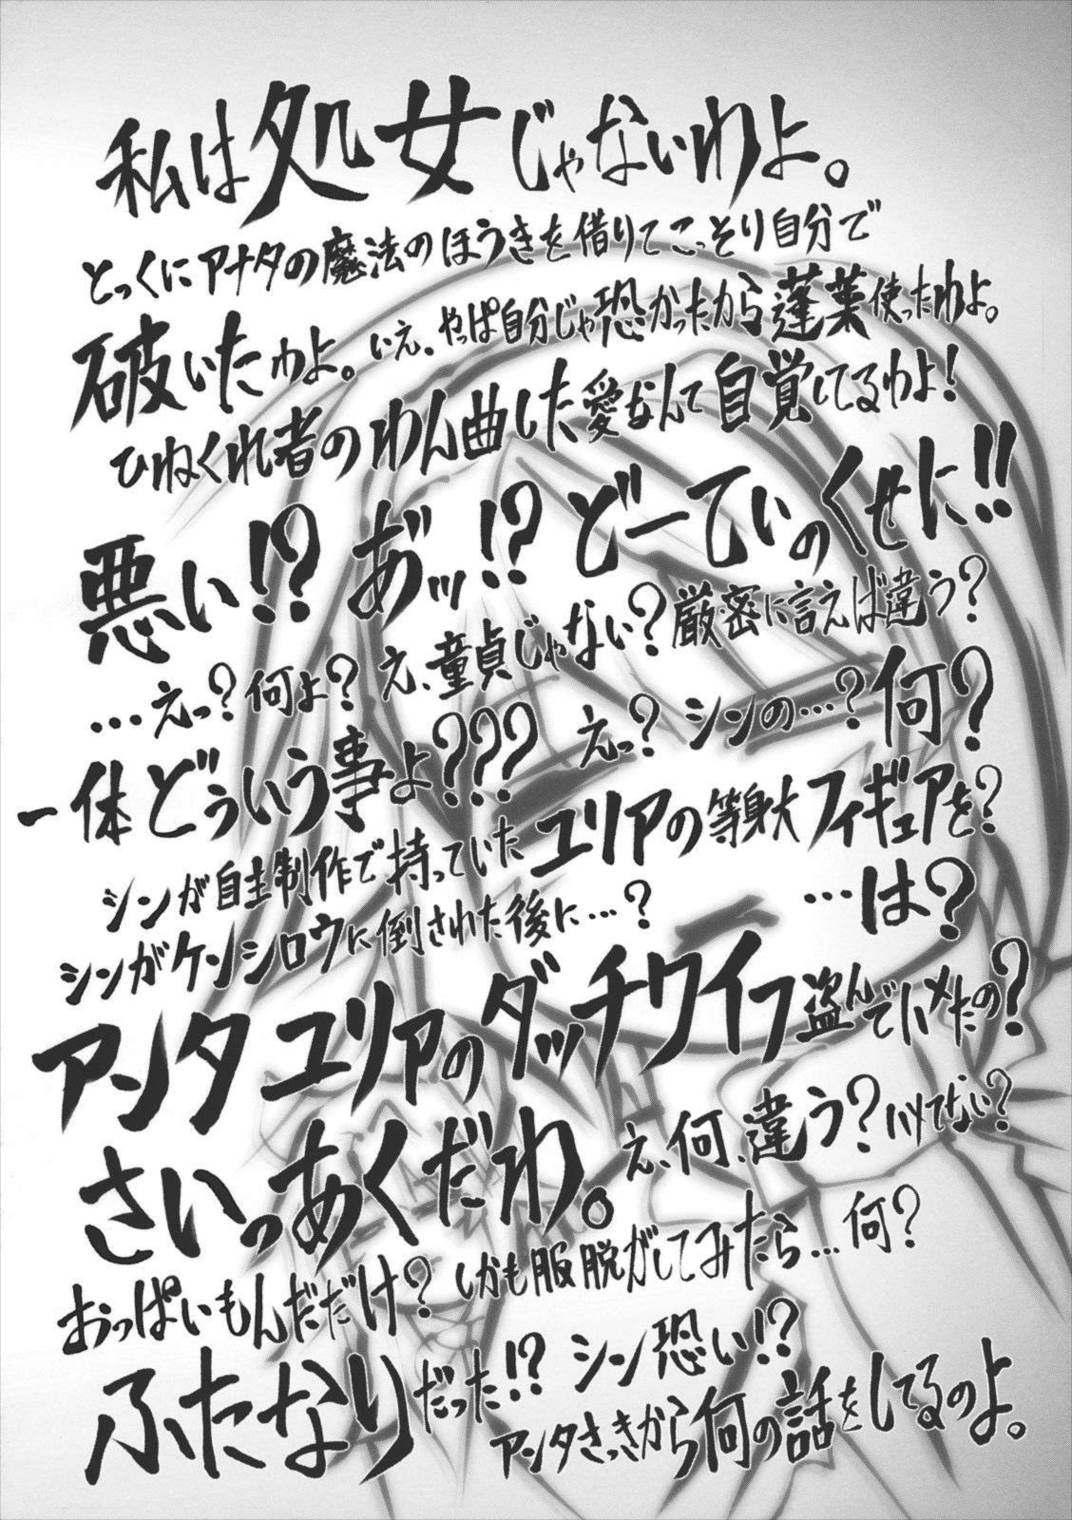 私は処女じゃないわよ。
とっくにアナタの魔法のほうきを借りてこっそり自分で
破いたわよ。いえ、やっぱ自分じゃ恐かったから蓬莱使ったわよ。
ひねくれ者のわん曲した愛なんて自覚してるわよ!
悪い!? あ゛ッ!? どーてぃのくせに!!
…えっ?何ょ? え、童貞じゃない?厳密に言えば違う?
一体どぅいう事ょ??? えっ? シンの…?何?
シンが自主制作で持っていたユリアの等身大フィギュアを?
シンがケンシロウに倒された後に…? …は?
アンタユリアのダッチワイフ盗んでハメたの?
さいっあくだわ。え、何、違う?ハメてない?
おっぱいもんだだけ?しかも服脱がしてみたら…何?
ふたなりだった!? シン恐い!?
アンタさっきから何の話をしてるのよ。